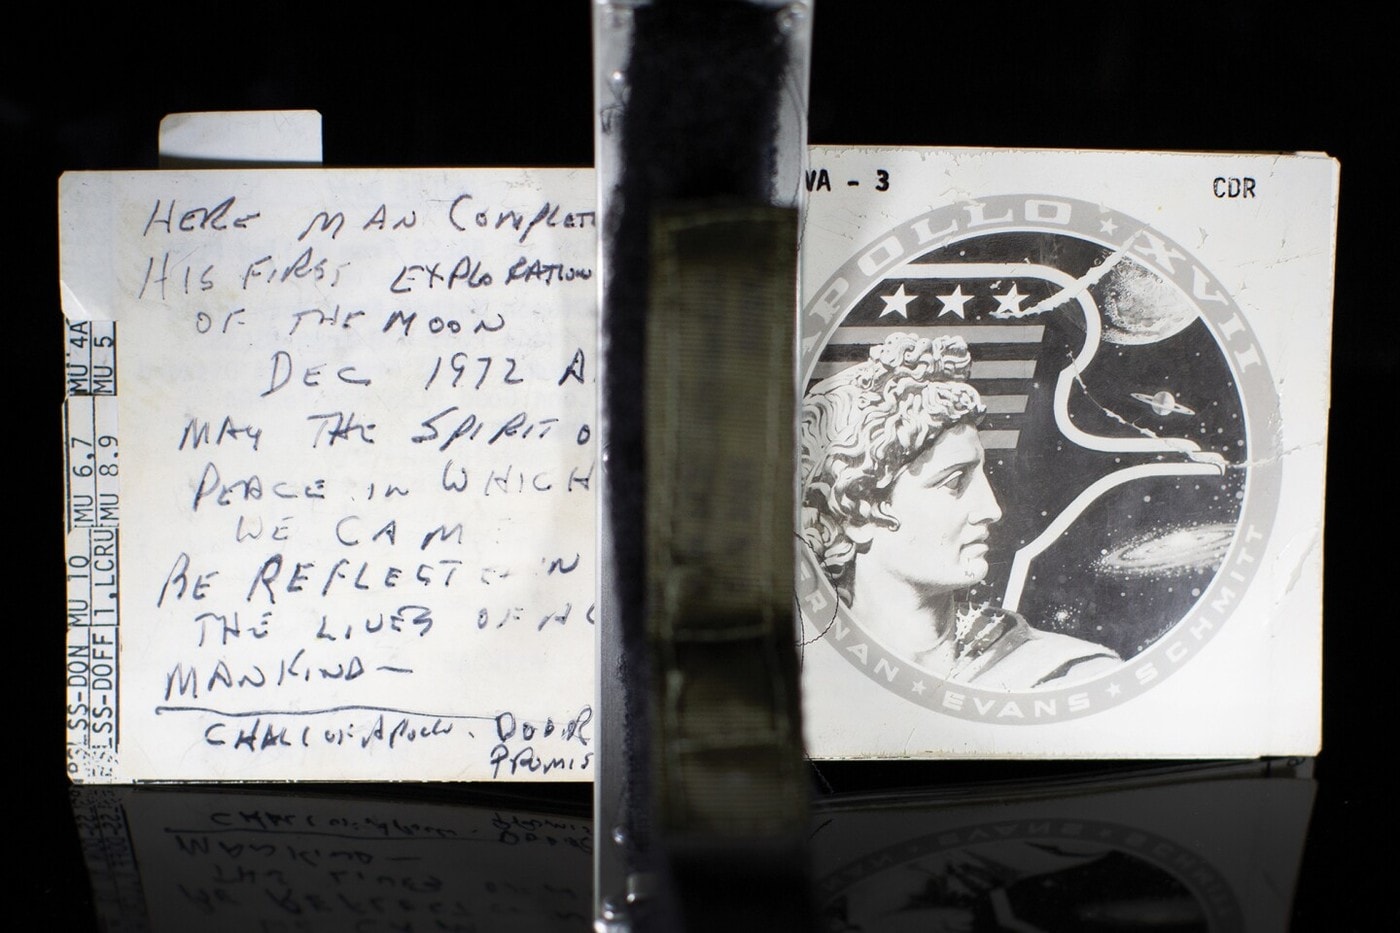 HERE MAN COMPLET
HIS FIRST EXPLORATION
OF THE MOON
DEC 1972 A.
MAY THE SPIRIT O
PEACE IN WHICH
WE CAM
BE REFLECT IN
THE LIVES OF
MANKIND—
CHALL OF APOLLO. DOOR
PROMIS
MU 4A
MU 5
MU 6,7
MU 8,9
LSS-DON MU 10
LSS-DOFF 1,LCRU
VA - 3
CDR
APOLLO ★ XVII
RNAN ★ EVANS ★ SCHMITT